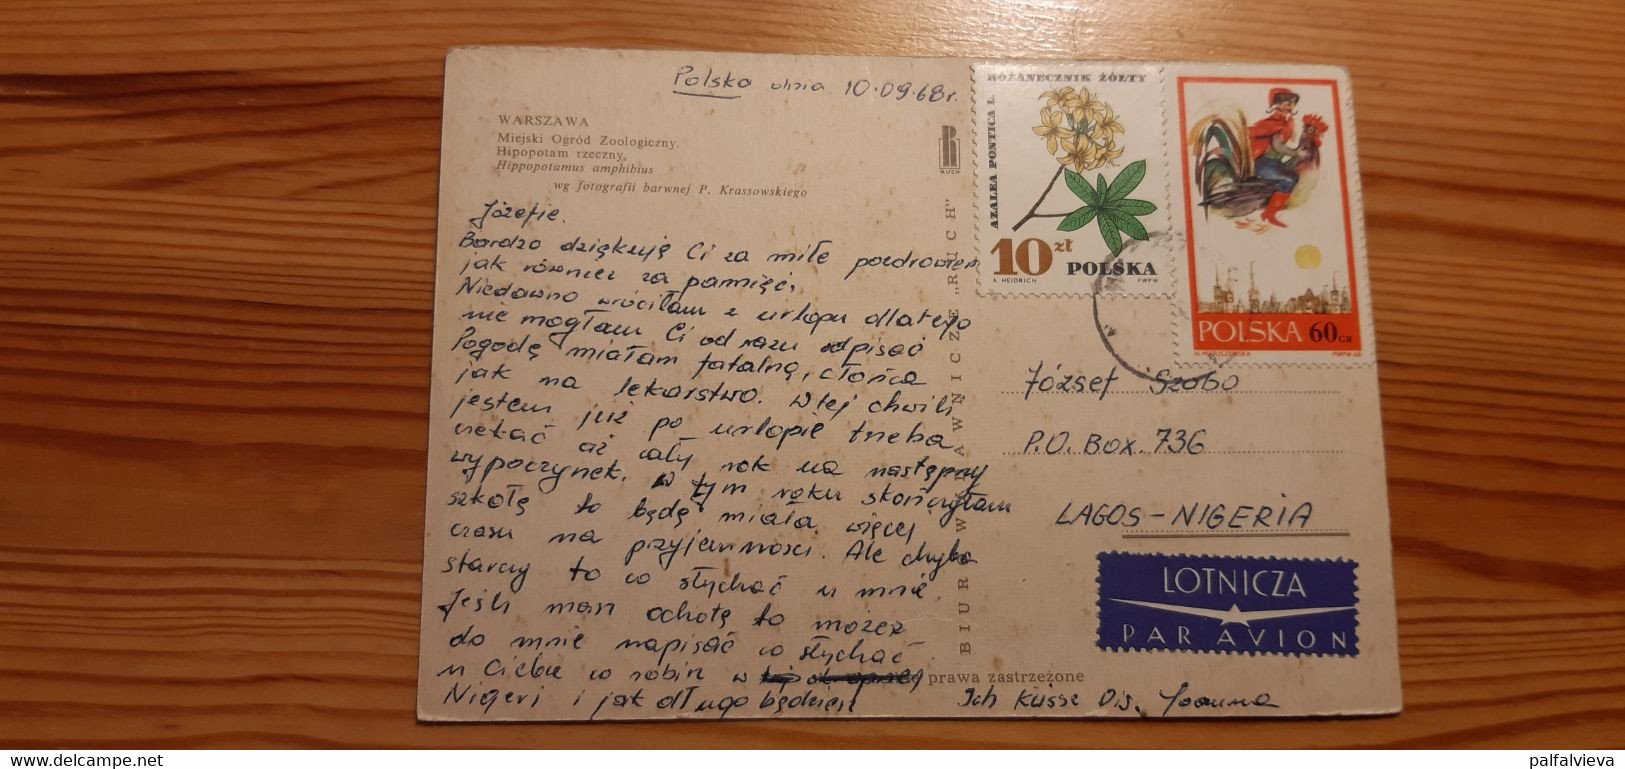 Polska dnia 10.09.68r.
WARSZAWA
Miejski Ogród Zoologiczny.
Hipopotam rzeczny,
Hippopotamus amphibius
wg fotografii barwnej P. Krassowskiego
RUCH
Józefie.
Bardzo dziękuję Ci za miłe pozdrowien
jak również za pamięć,
Niedawno wróciłam z urlopu dlatego
nie mogłam Ci od razu odpisać
Pogodę miałam fatalną, słońca
jak na lekarstwo. W tej chwili
jestem już po urlopie trzeba
czekać aż cały rok na następny
wypoczynek. W tym roku skończyłam
szkołę to będę miała więcej
czasu na przyjemności. Ale chyba
starczy to co słychać u mnie.
Jeśli masz ochotę to możesz
do mnie napisać co słychać
u Ciebie co robisz w
Nigeri i jak długo będziesz
Ich küsse Dis. Joanna
BIURO WYDAWNICZE „RUCH"
prawa zastrzeżone
RÓŻANECZNIK ŻÓŁTY
AZALEA PONTICA L.
10 zł
POLSKA
A. HEIDRICH PWPW
POLSKA 60 GR
H. MATUSZEWSKA PWPW-68
József Szabo
P.O. Box. 736
LAGOS-NIGERIA
LOTNICZA
PAR AVION
delcampe.net
palfalvieva